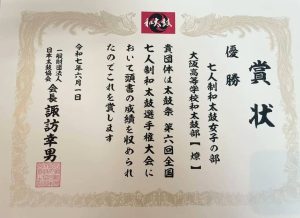 和太鼓
賞状
優勝
七人制和太鼓女子の部
大阪高等学校和太鼓部【燎】
貴団体は太鼓祭 第六回全国
七人制和太鼓選手権大会に
おいて頭書の成績を収められ
たのでこれを賞します
令和七年六月一日
一般財団法人
日本太鼓協会
会長 諏訪幸男